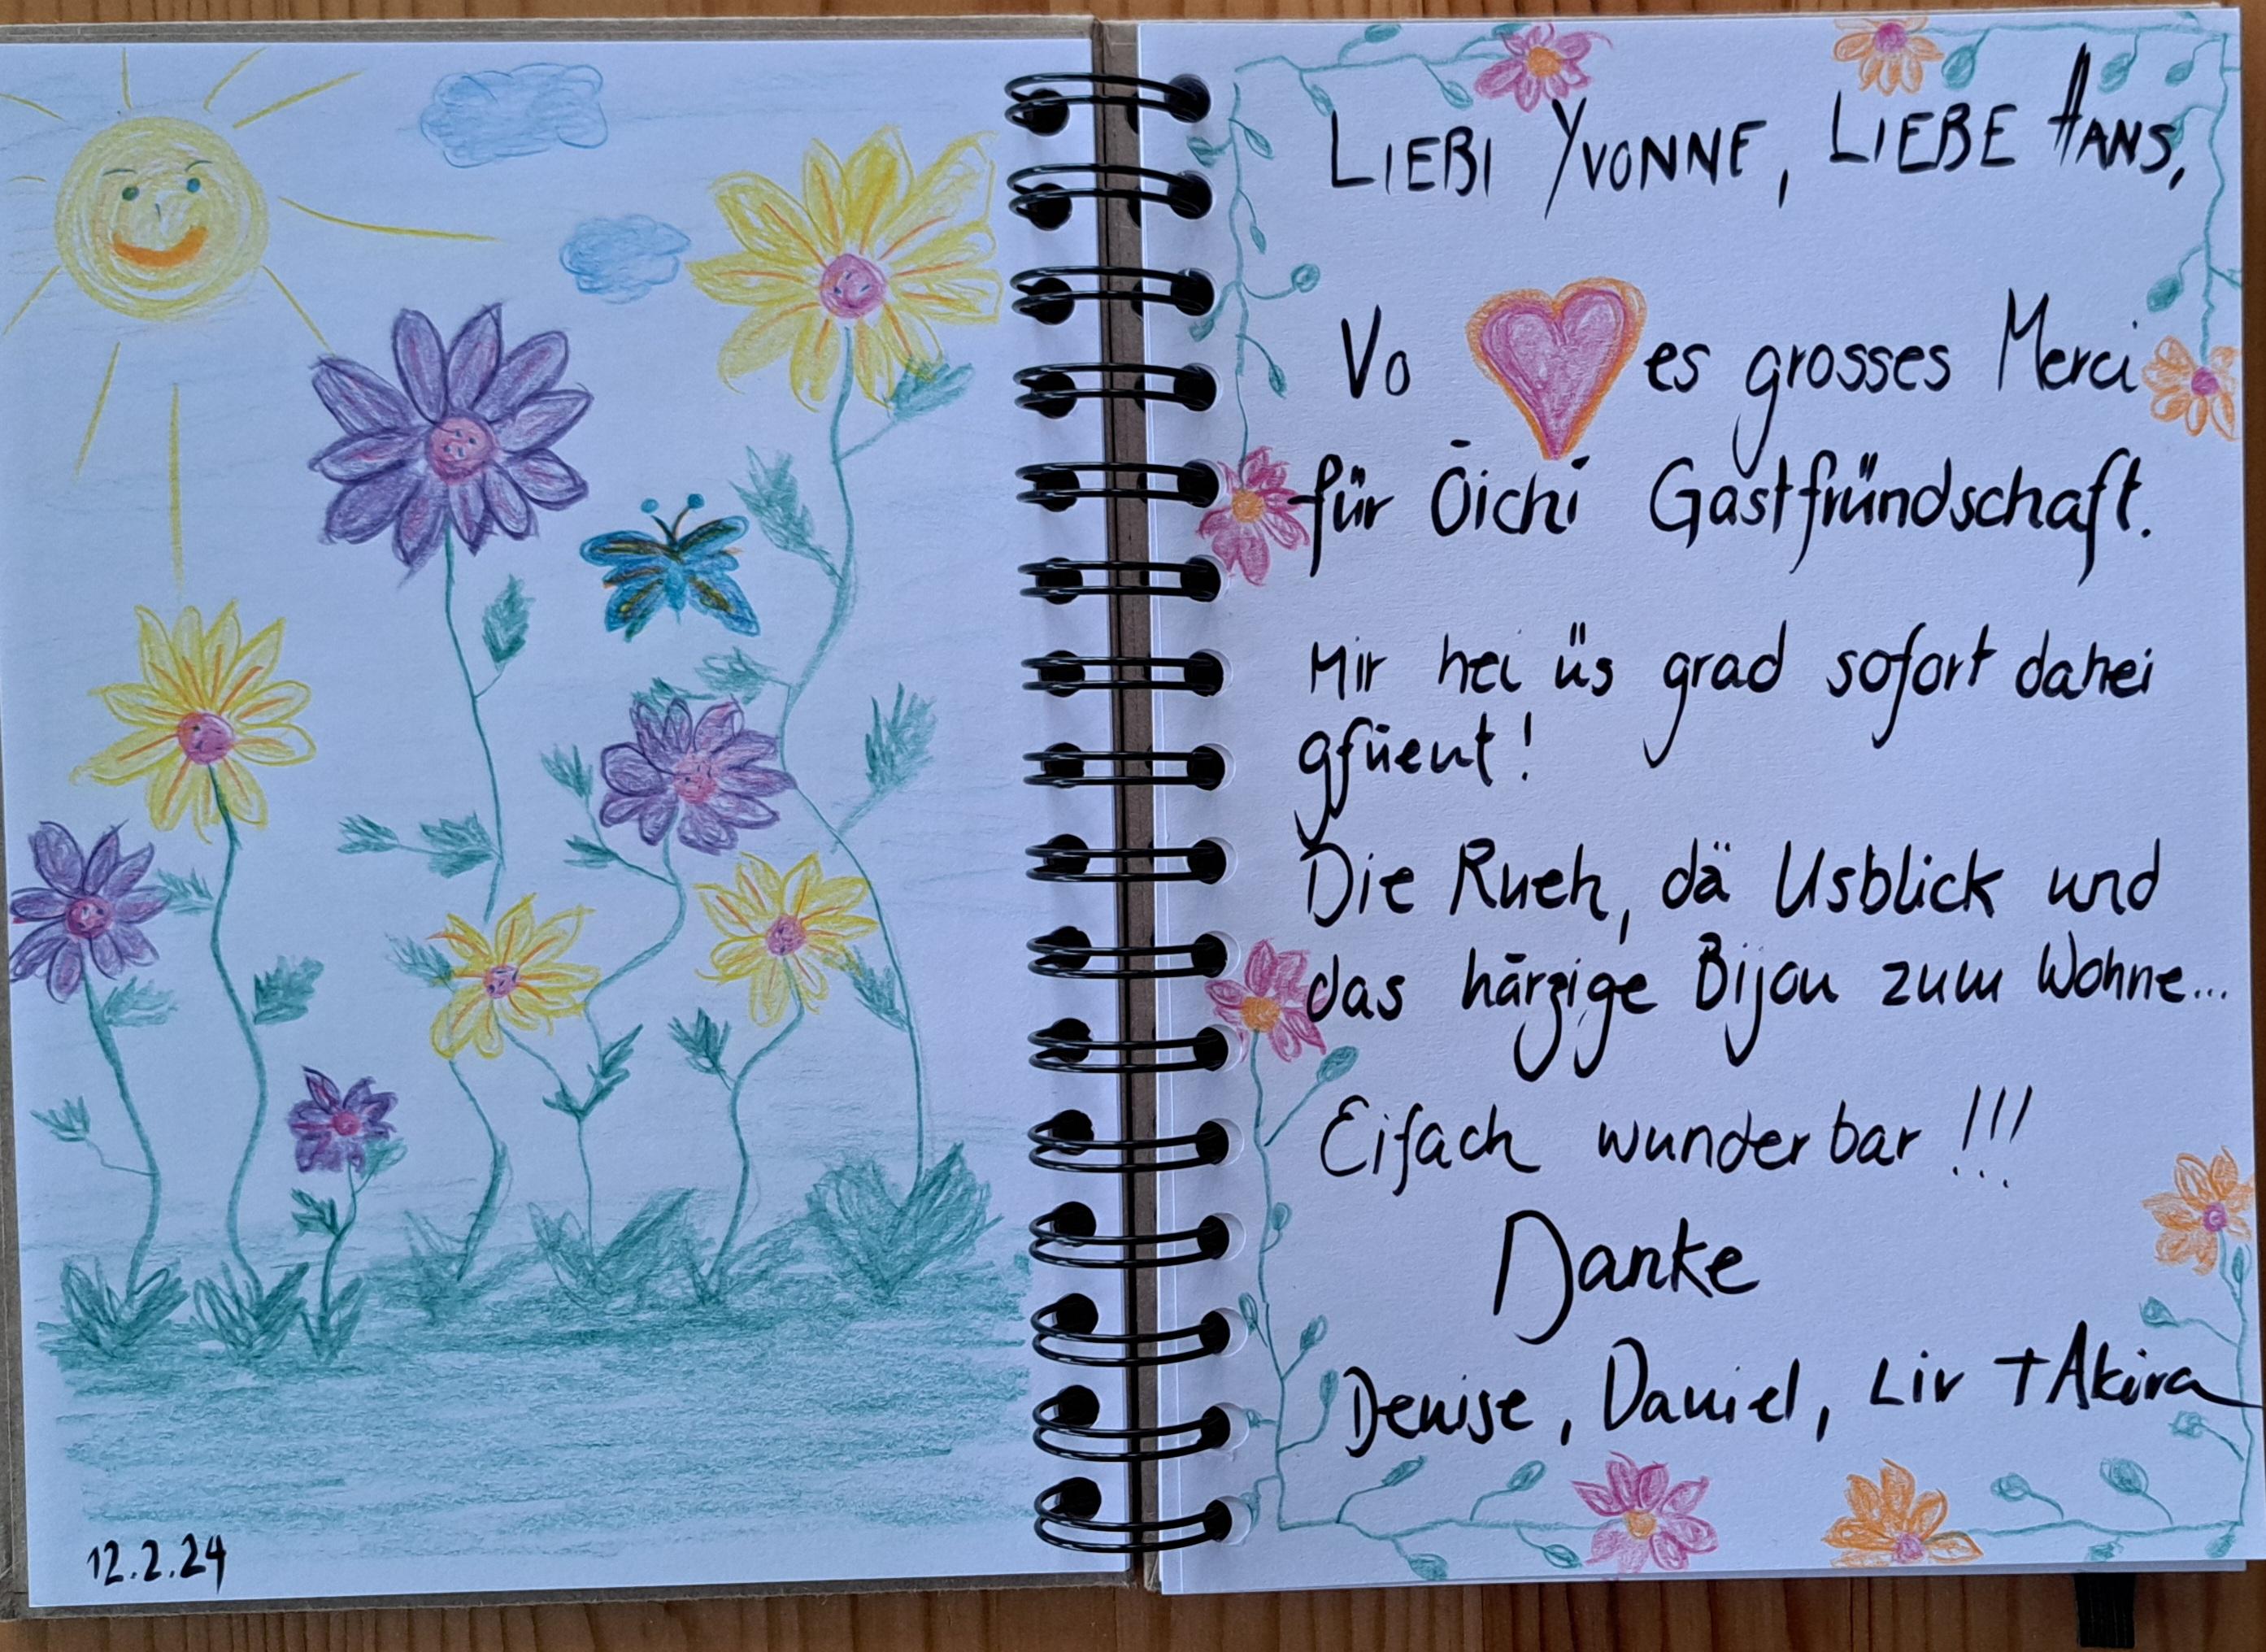 12.2.24
LIEBI YVONNE, LIEBE HANS,
Vo es grosses Merci
für Öichi Gastfründschaft.
Mir hei üs grad sofort dahei
gfüeut!
Die Rueh, dä Usblick und
das härzige Bijou zum Wohne...
Eifach wunderbar!!!
Danke
Denise, Daniel, Liv + Akira